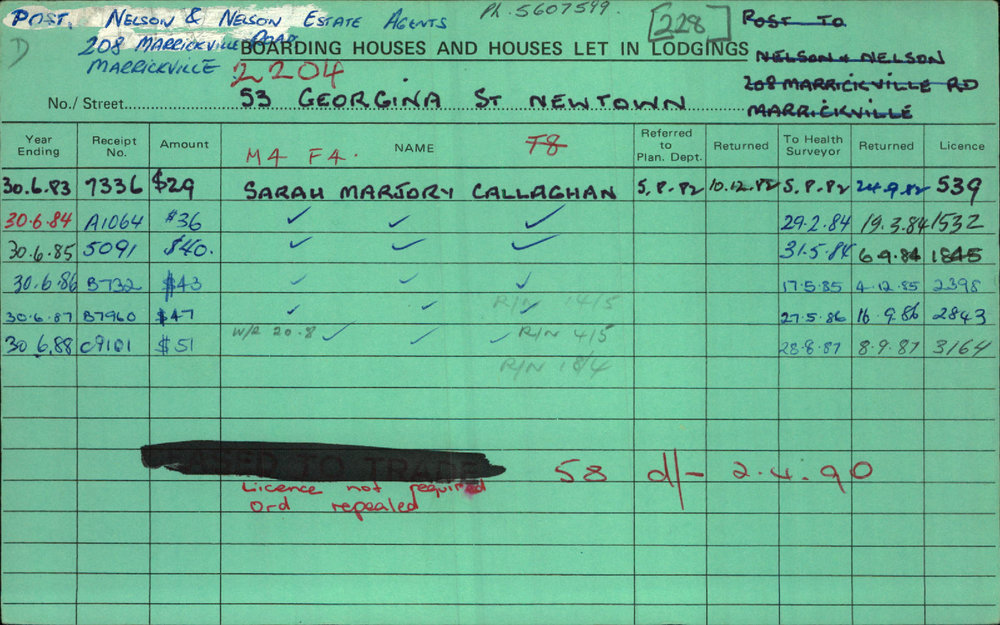 POST. NELSON & NELSON ESTATE AGENTS Ph. 5607599. 228 POST TO
D 208 MARRICKVILLE ROAD BOARDING HOUSES AND HOUSES LET IN LODGINGS NELSON & NELSON
MARRICKVILLE 2204 208 MARRICKVILLE RD
No./Street 53 GEORGINA ST NEWTOWN MARRICKVILLE
Year Ending Receipt No. Amount M4 F4. NAME T8 Referred to Plan. Dept. Returned To Health Surveyor Returned Licence
30.6.83 7336 $29 SARAH MARJORY CALLAGHAN 5.8.82 10.12.82 5.8.82 24.9.82 539
30.6.84 A1064 $36 ✓ ✓ ✓ 29.2.84 19.3.84 1532
30.6.85 5091 $40. ✓ ✓ ✓ 31.5.84 6.9.84 1845
30.6.86 B732 $43 ✓ ✓ ✓ 17.5.85 4.12.85 2398
R/N 14/5
30.6.87 B7960 $47 ✓ ✓ ✓ 27.5.86 16.9.86 2843
30.6.88 C9101 $51 W/R 20.8 ✓ ✓ ✓ R/N 4/5 28.8.87 8.9.87 3164
R/N 18/4
TO TRADE 58 d/- 2.4.90
Licence not required
Ord repealed